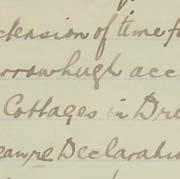 xtension of time fo
rrowhugh acc
Cottages in Dre
Declaratio